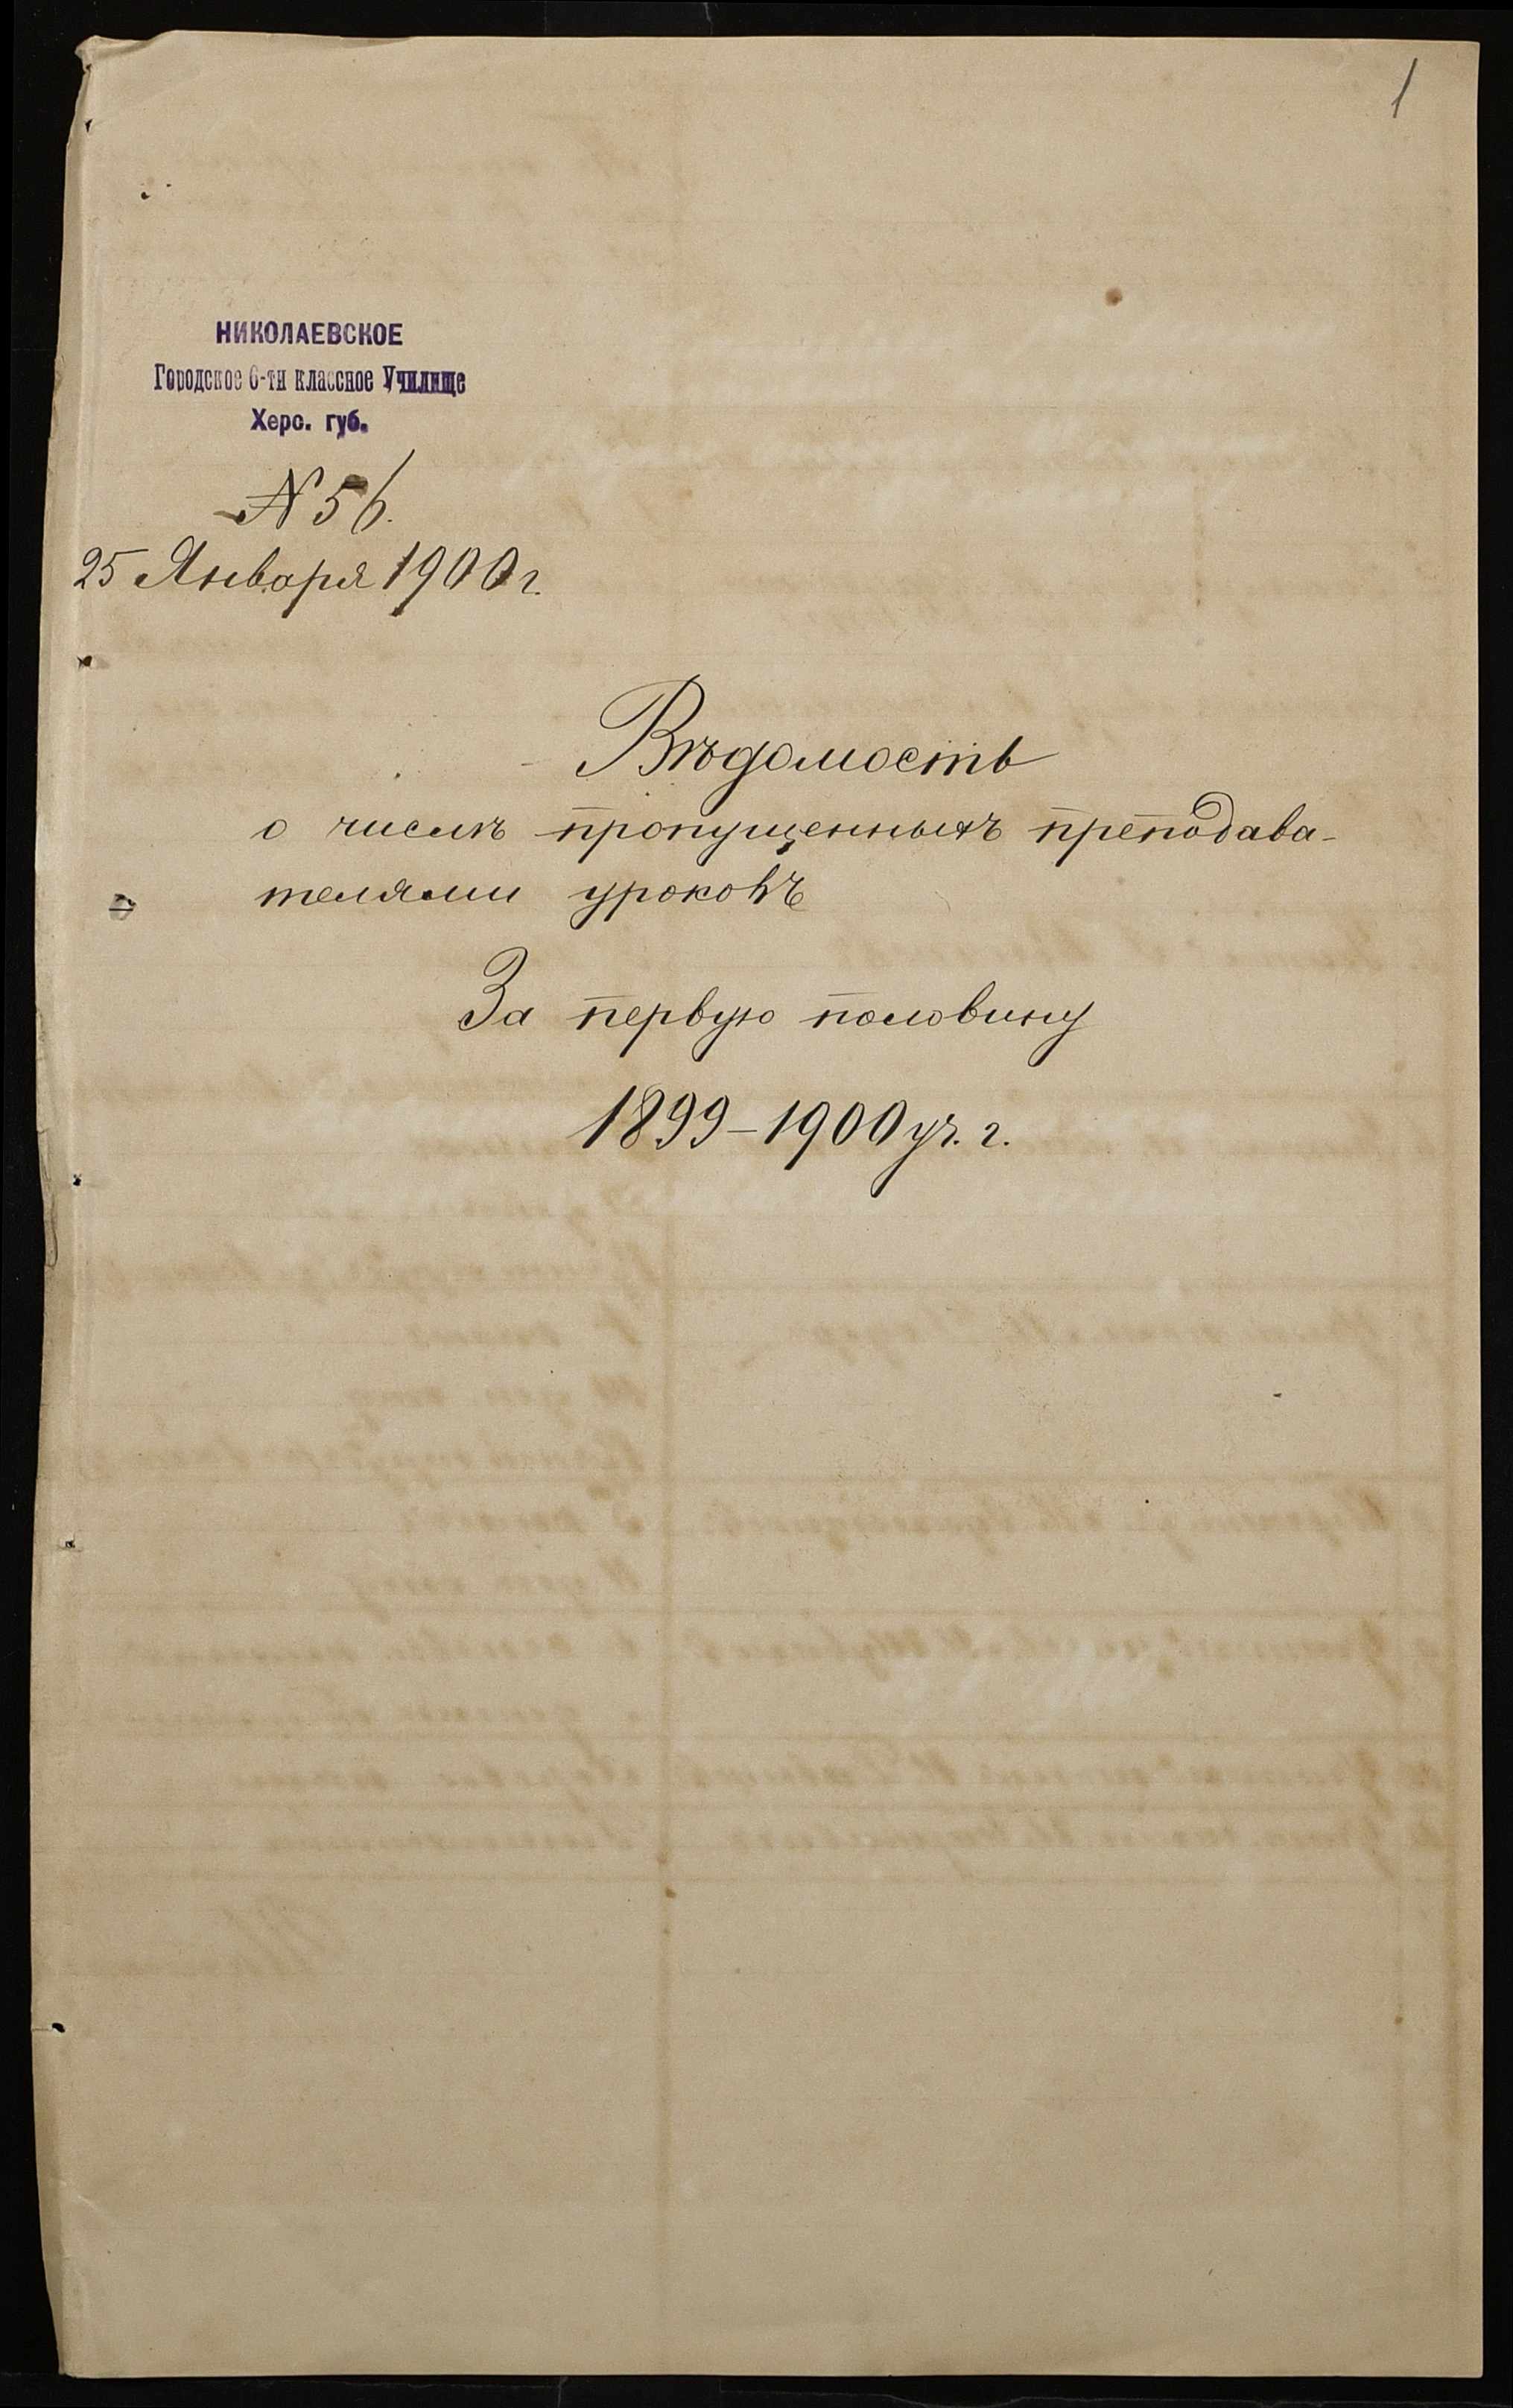 1
НИКОЛАЕВСКОЕ
Городское 6-ти классное Училище
Херс. губ.
№ 56.
25 Января 1900 г.
Вѣдомость
о числѣ пропущенныхъ преподава-
телями уроковъ
За первую половину
1899-1900 уч. г.